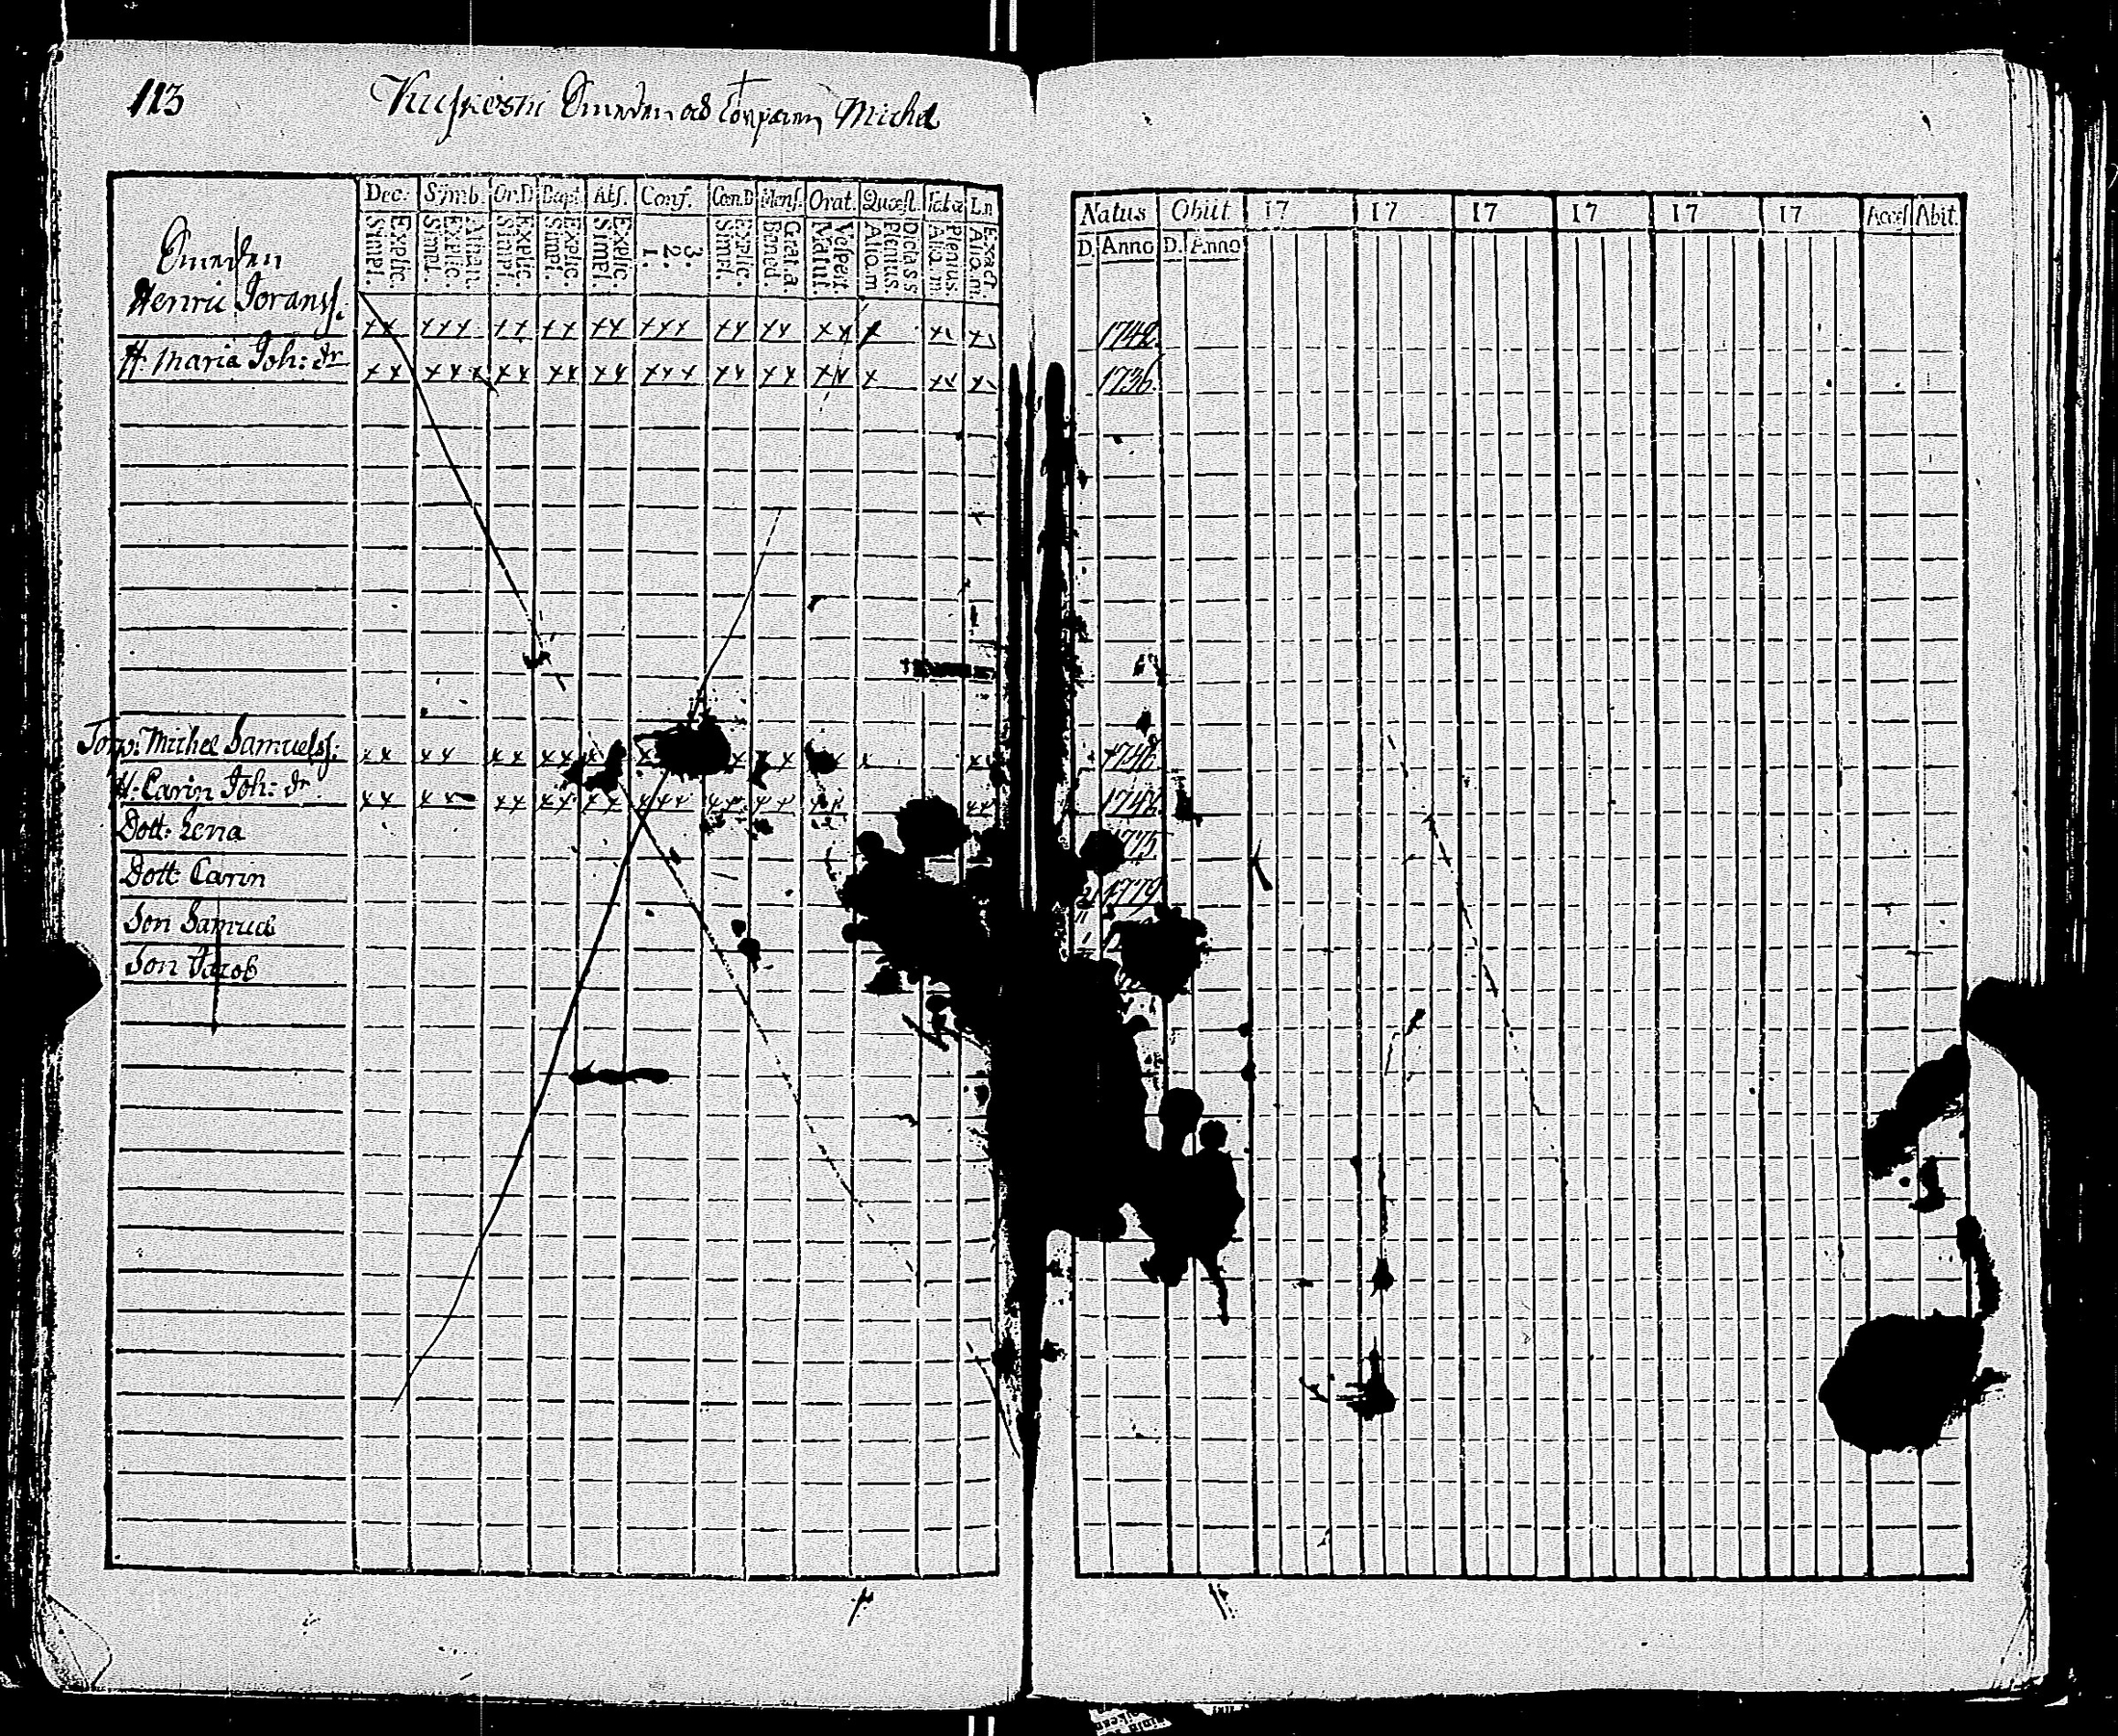 113
Smeden och Torparen Michel
Dec. Simb. Or.D. Bapt. Abs. Conf. Cœn.D Mens. Orat. Quæst. Tab.œ Ln
Simpl. Explic. Simpl. Explic. Athan. Simpl. Explic. Simpl. Explic. Simpl. Explic. 1. 2. 3. Simpl. Explic. Bened. Grat.a. Matut. Vesper. Aliq.m Plenius. Dicta S.s. Aliq.m Plenius. Aliq.m Exact.
Natus Obiit 17 17 17 17 17 17 Access Abit
D. Anno D. Anno
Smeden
Henric Joranss.
xx xxx xx xx xx xxx xx xx xx x xx xx 1742.
H. Maria Joh: dr
xx xxx xx xx xx xxx xx xx xx x xx xx 1736.
Torp: Michel Samuelss:
xx xx xx xx
H. Carin Joh: dr
xx xx xx xx xx xxx xx xx xx xx
Dott: Lena 1775
Dott: Carin 1779
Son Samuel
Son Jacob